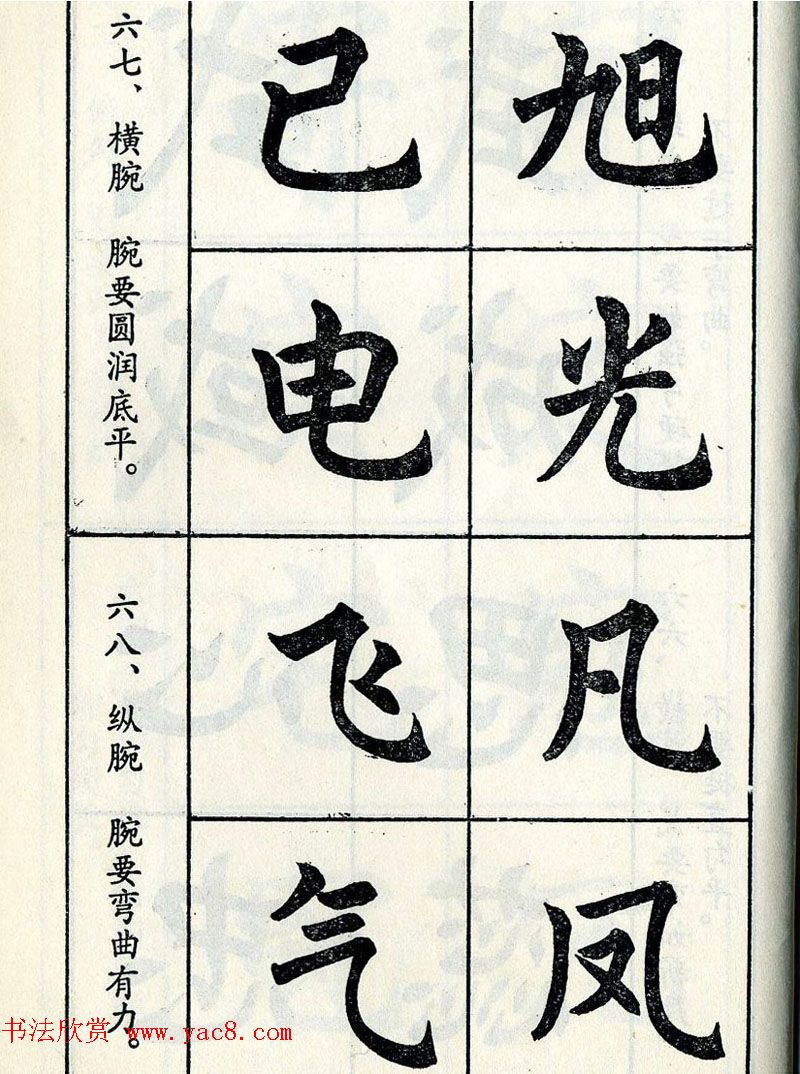 旭光
己电
六七、横腕 腕要圆润底平。
凡凤
飞气
六八、纵腕 腕要弯曲有力。
书法欣赏 www.yac8.com